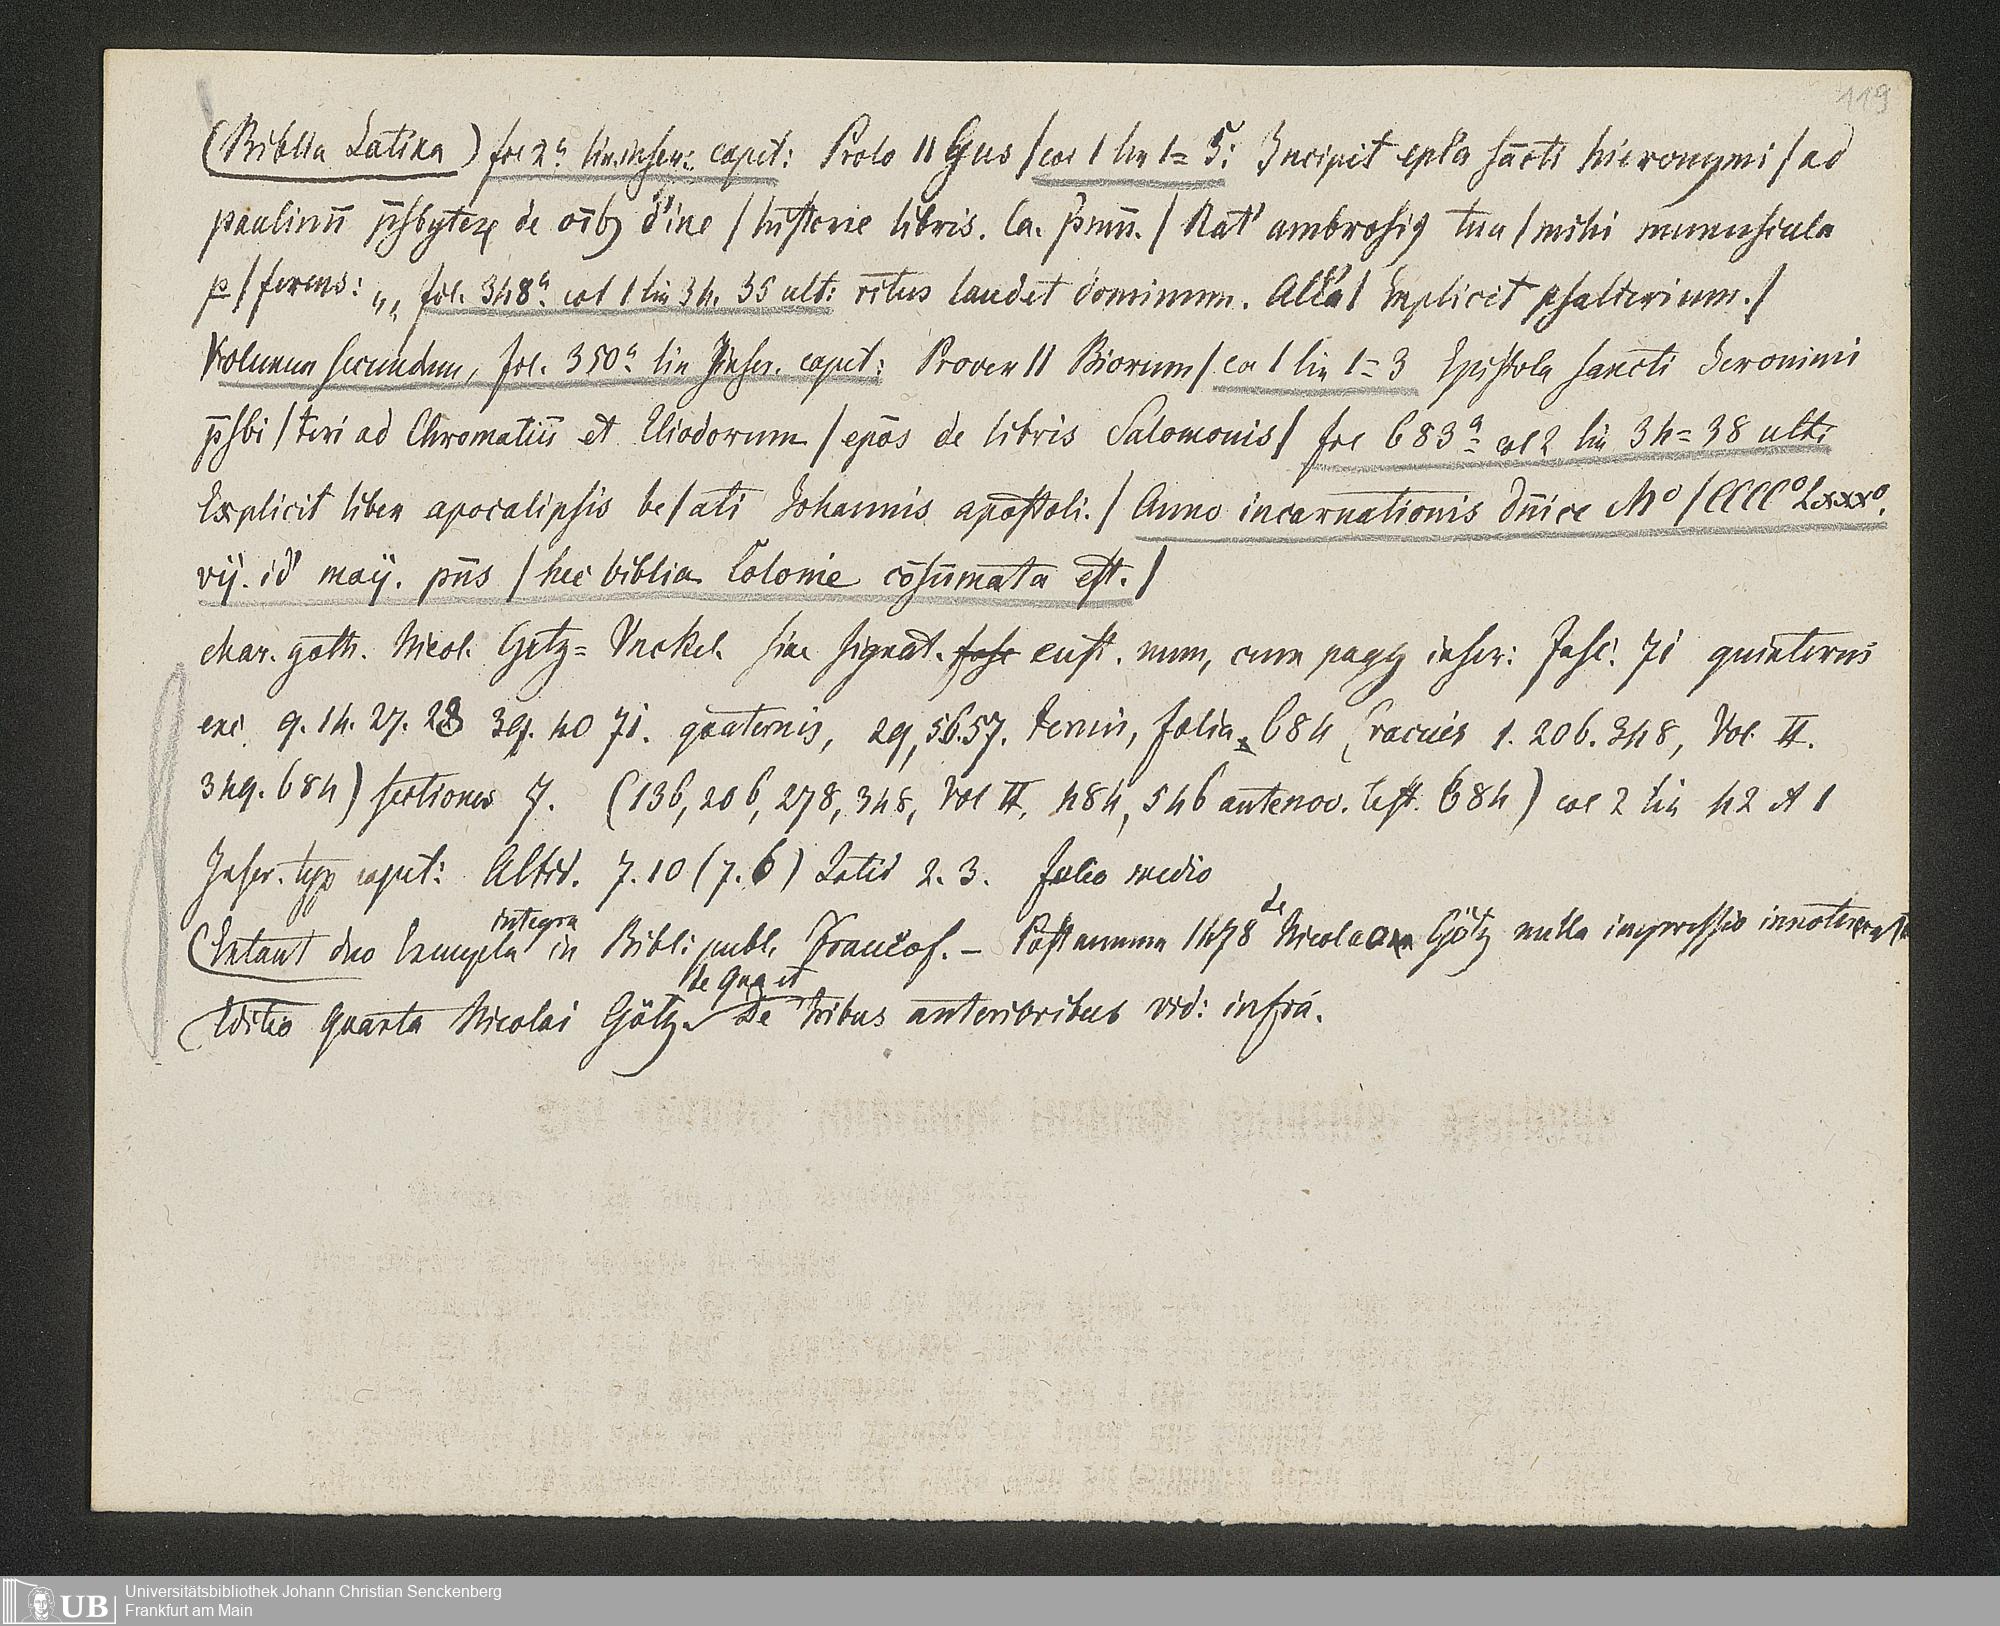 119
(Biblia Latina) fol 2ª lin. inscr. caput: Prolo || Gus / col 1 lin 1=5: Incipit epl'a sācti hieronymi / ad
paulinū p̄sbyteꝝ de oībꝫ d'ine / historie libris. Ca. p̄mū. / Rat' ambrosiꝰ tua / mihi munuscula
p̲ / ferens: „„ fol. 348ª col 1 lin 34. 35 ult: ritus laudet dominum. All'a / Explicit psalterium. /
Volumen secundum, fol. 350ª lin inscr. caput: Prover || Biorum / co 1 lin 1=3 Epistola sancti Jeronimi
p̄sbi / teri ad Chromatiū et Eliodorum / ep̄os de libris Salomonis / fol 683ª col 2 lin 34=38 ult:
Explicit liber apocalipsis be / ati Johannis apostoli. / Anno incarnationis dn̄ice M° / CCCC° Lxxx°.
vij. id' maij. pn̄s / hec biblia Colonie cōsūmata est. /
char. goth. Nicol. Götz= Unckel. sine signat. fasc cust. num, cum pagg inscr: Fasc. 71 quinternis
exc. 9. 14. 27. 28 39. 40 71. quaternis, 29, 56. 57. ternis, folia 684 (vacuis 1. 206. 348, Vol II.
349. 684) sectiones 7. (136, 206, 278, 348, Vol II, 484, 546 ante nov. Test. 684) col 2 lin 42 et 1
Inscr. typ caput: Altit. 7.10 (7.6) Latit 2.3. Folio medio
(Extant duo Exempla integra in Bibl: publ. Francof. – Post annum 1478 de Nicolao Götz nulla impressio innotescat
Editio quarta Nicolai Götz. de qua et De tribus anterioribus vid: infra.
UB
Universitätsbibliothek Johann Christian Senckenberg
Frankfurt am Main